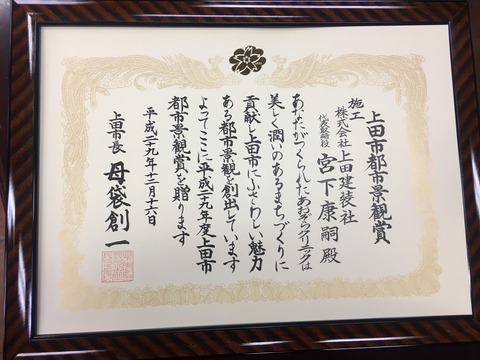 上田市都市景観賞
施工
株式会社上田建装社
代表取締役 宮下康嗣殿
あなたがつくられたあむろクリニックは
美しく潤いのあるまちづくりに
貢献し上田市にふさわしい魅力
ある都市景観を創出しています
よってここに平成二十九年度上田市
都市景観賞を贈ります
平成二十九年十二月十六日
上田市長 母袋創一